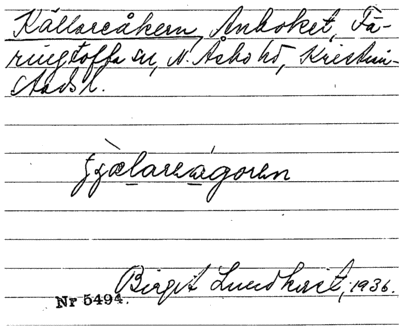 Källareåkern, Anhoket, Fä-
ringtofta sn, N. Åsbo hd, Kristian-
stads l.
Birgit Lundkvist, 1936.
Nr 5494.